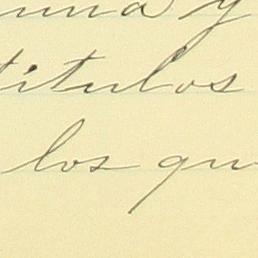 y
titulos
los qu